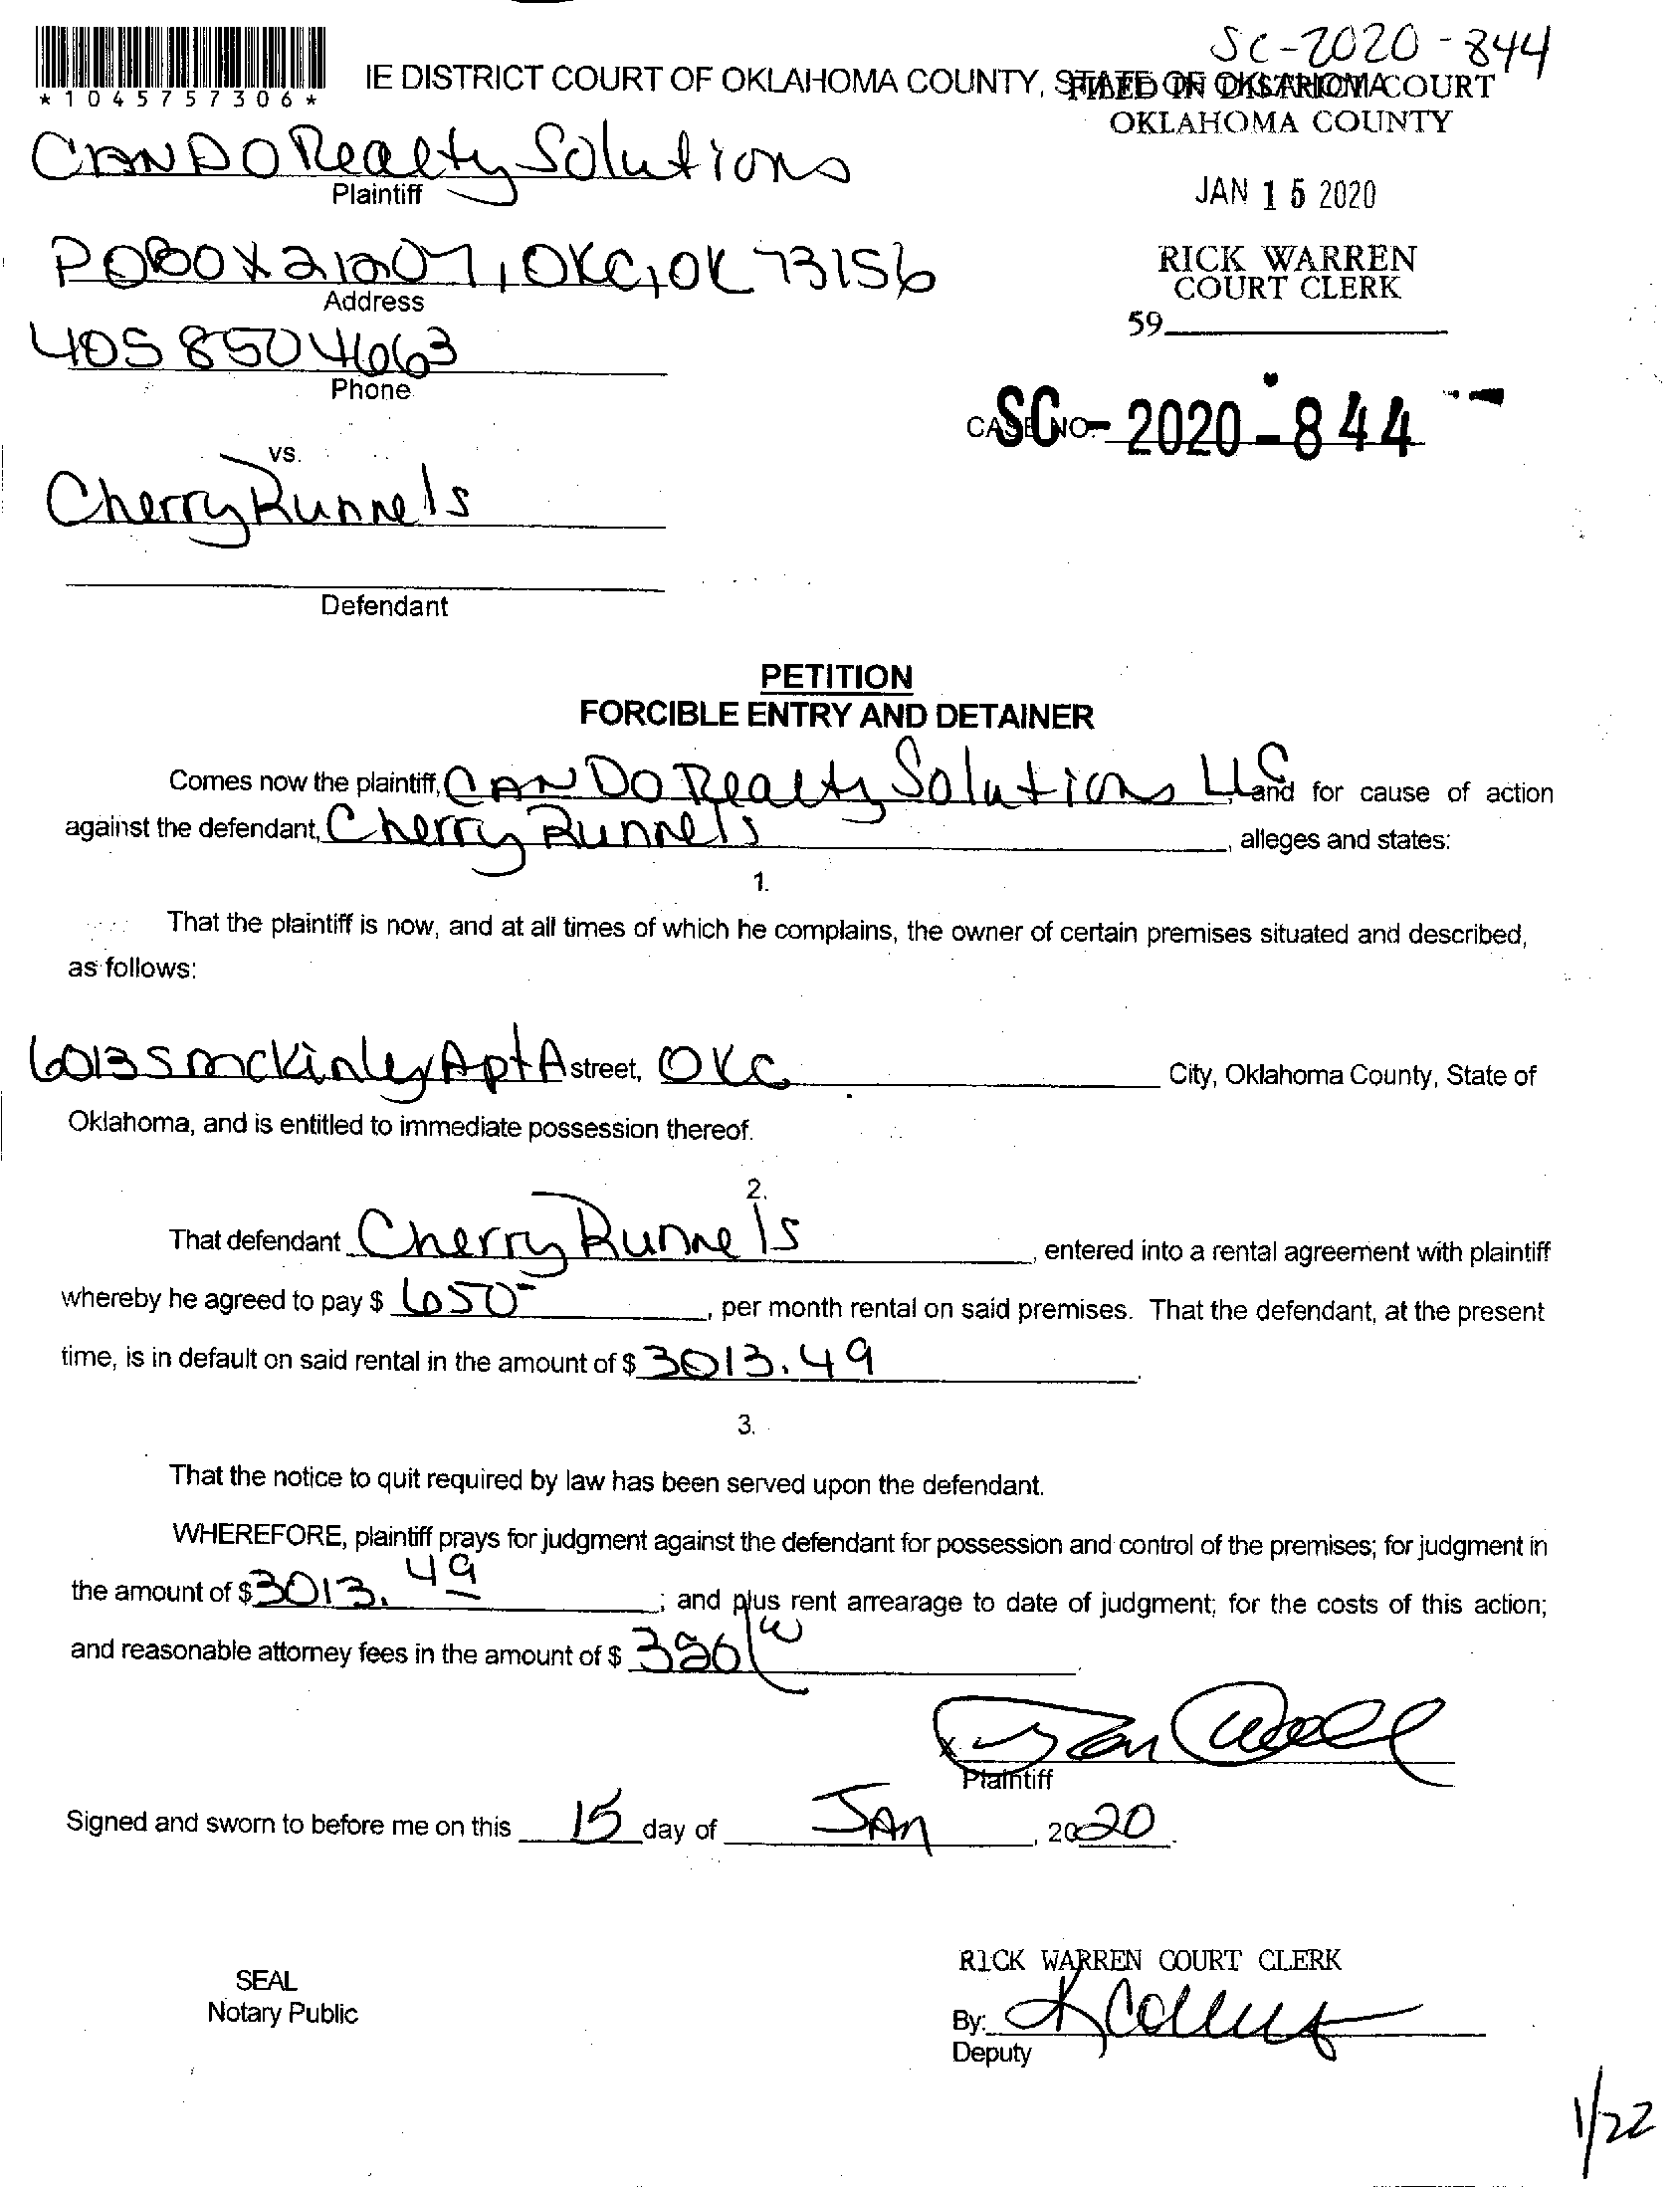 SC-2020-844
*1045757306*
IE DISTRICT COURT OF OKLAHOMA COUNTY, STATE OF OKLAHOMA
FILED IN DISTRICT COURT
OKLAHOMA COUNTY
CANDO Realty Solutions
Plaintiff
JAN 15 2020
POBOX 21207, OKC, OK 73156
Address
RICK WARREN
COURT CLERK
59
405 8504663
Phone
CASE NO.
SC-2020-844
vs.
Cherry Runnels
Defendant
PETITION
FORCIBLE ENTRY AND DETAINER
Comes now the plaintiff, CAN DO Realty Solutions LLC, and for cause of action
against the defendant, Cherry Runnels, alleges and states:
1.
That the plaintiff is now, and at all times of which he complains, the owner of certain premises situated and described,
as follows:
6013 S mckinley Apt A street, OKC City, Oklahoma County, State of
Oklahoma, and is entitled to immediate possession thereof.
2.
That defendant Cherry Runnels, entered into a rental agreement with plaintiff
whereby he agreed to pay $ 650-, per month rental on said premises. That the defendant, at the present
time, is in default on said rental in the amount of $ 3013.49.
3.
That the notice to quit required by law has been served upon the defendant.
WHEREFORE, plaintiff prays for judgment against the defendant for possession and control of the premises; for judgment in
the amount of $ 3013.49; and plus rent arrearage to date of judgment; for the costs of this action;
and reasonable attorney fees in the amount of $
x
Plaintiff
Signed and sworn to before me on this 15 day of JAN, 2020.
RICK WARREN COURT CLERK
SEAL
Notary Public
By:
Deputy
1/22